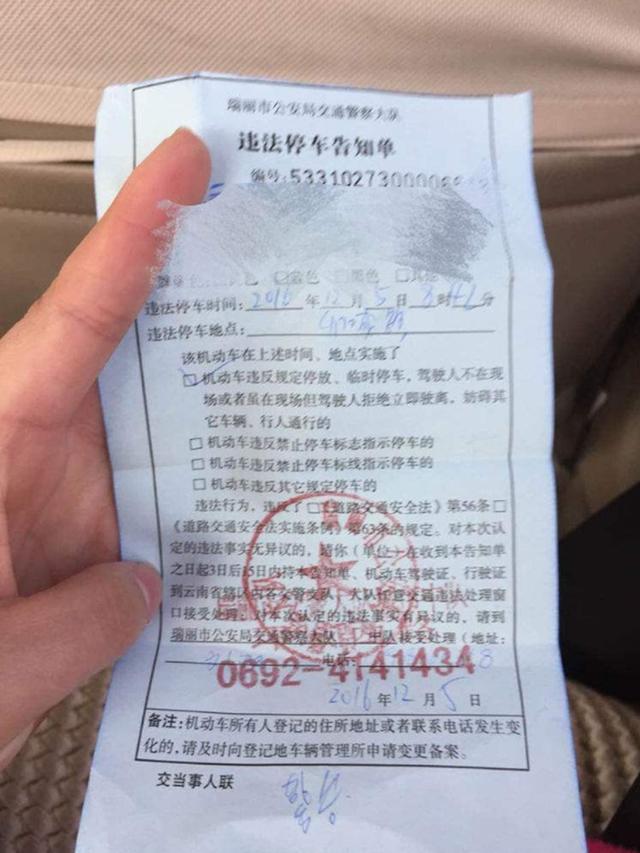 瑞丽市公安局交通警察大队
违法停车告知单
编号:5331027300006
色 □蓝色 □黑色 □其他
违法停车时间:2016年12月5日8时 分
违法停车地点:
该机动车在上述时间、地点实施了
□机动车违反规定停放、临时停车,驾驶人不在现
场或者虽在现场但驾驶人拒绝立即驶离,妨碍其
它车辆、行人通行的
□机动车违反禁止停车标志指示停车的
□机动车违反禁止停车标线指示停车的
□机动车违反其它规定停车的
违法行为,违反了□《道路交通安全法》第56条□
《道路交通安全法实施条例》第63条的规定。对本次认
定的违法事实无异议的,请你(单位)在收到本告知单
之日起3日后15日内持本告知单、机动车驾驶证、行驶证
到云南省辖区内各交警支队、大队任意交通违法处理窗
口接受处理;对本次认定的违法事实有异议的,请到
瑞丽市公安局交通警察大队 中队接受处理(地址:
电话:
0692-4141434
2016年12月5日
备注:机动车所有人登记的住所地址或者联系电话发生变
化的,请及时向登记地车辆管理所申请变更备案。
交当事人联